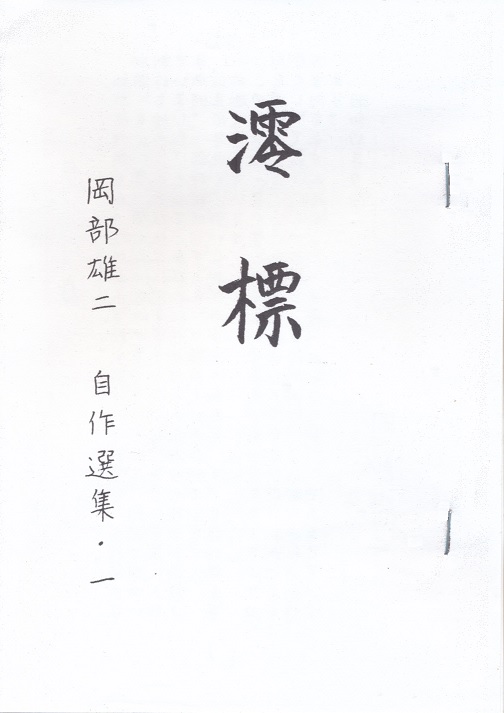 澪標
岡部雄二 自作選集・一